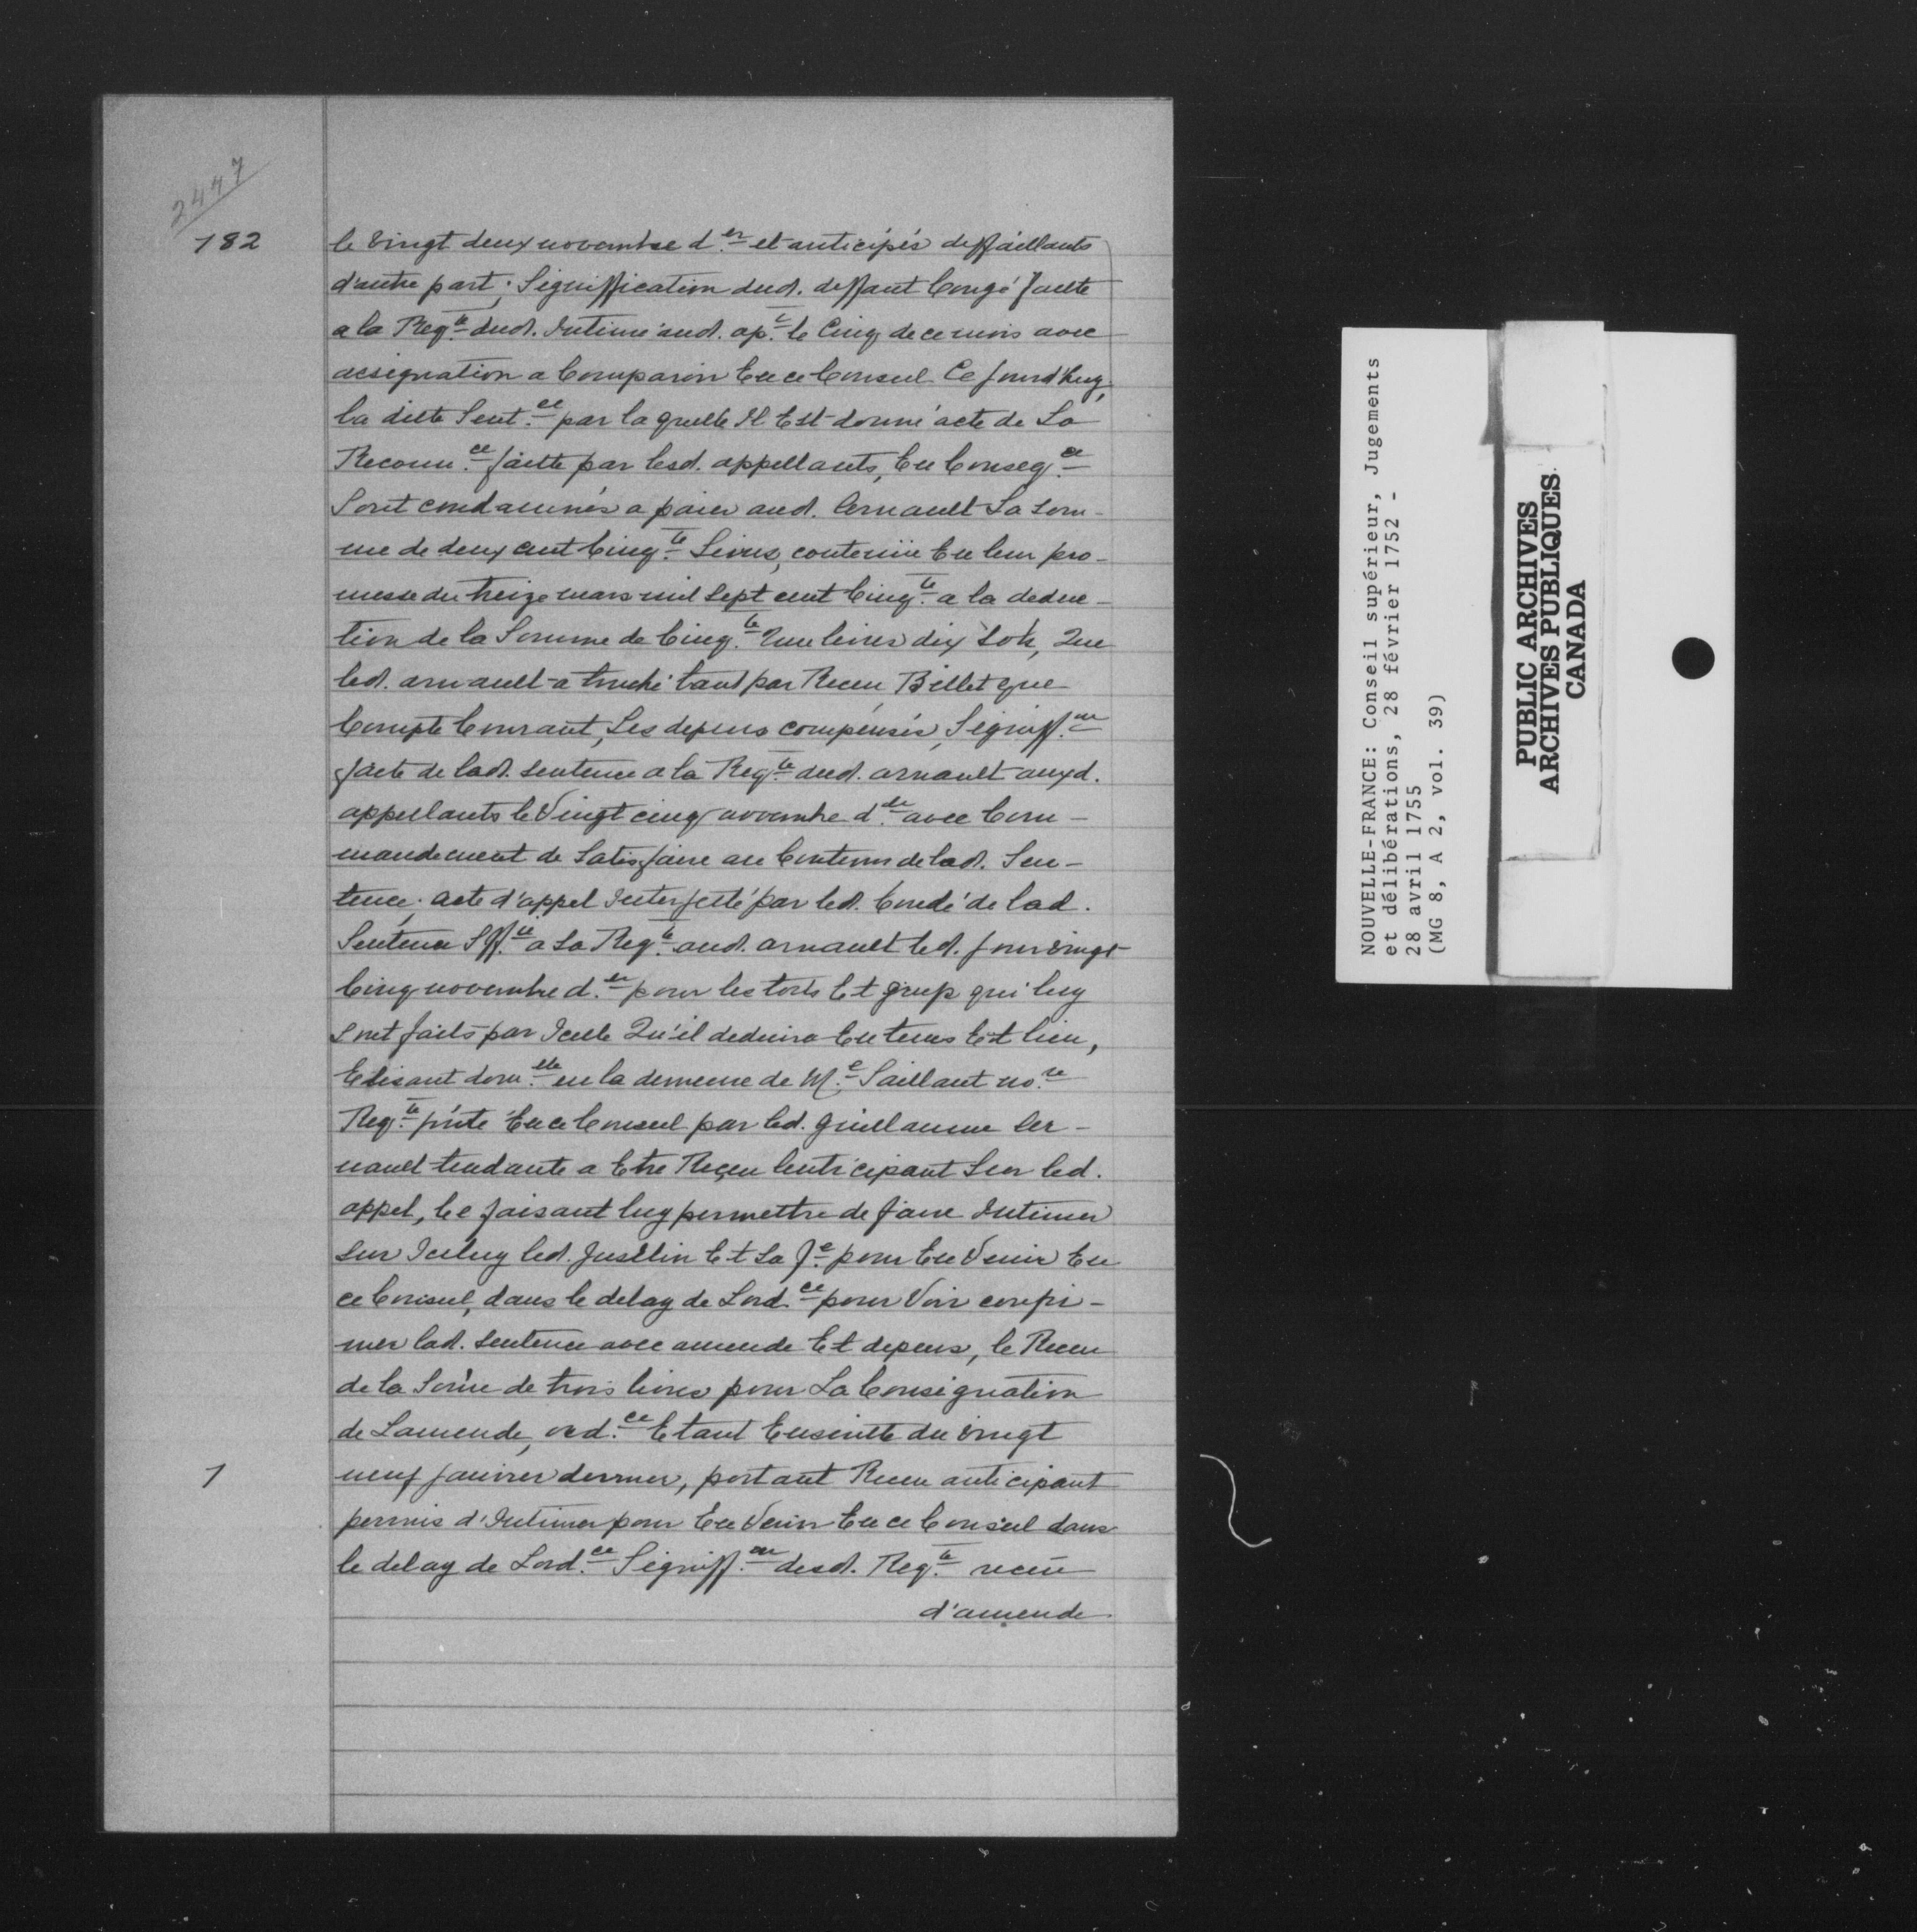 2447
182
le Vingt deux novembre d.er et anticipés deffaillants
d'autre part; Signiffication dud. deffaut Congé faitte
a la Req.te dud. Intimé aud. ap.t le Cinq de ce mois avec
assignation a Comparoir En ce Conseil Ce jourd'huy,
la ditte Sent.ce par la quelle Il Est donné acte de La
Reconn.ce faitte par lesd. appellants, En Conseq.ce
Sont condamnés a païer aud. Arnault La Som-
me de deux cent Cinq.te Livres, contenüe En leur pro-
messe du treize mars mil Sept cent Cinq.te a la deduc-
tion de la Somme de Cinq.te Une livres dix Sols, Que
led. arnault a touché tant par Receu Billet que
Compte Courant, Les depens compensés, Signiff.on
faite de lad. Sentence a la Req.te dud. arnault auxd.
appellants le Vingt cinq novembre d.er avec Com-
mandement de Satisfaire au Contenu de lad. Sen-
tence. acte d'appel Interjetté par led. Condé de lad.
Sentence Siff.ié a La Req.te aud. arnault led. jour vingt
Cinq novembre d.er pour les torts Et griefs qui luy
Sont faits par Icelle Qu'il deduira En tems Et lieu,
Elisant dom.lle en la demeure de M.e Saillant no.re
Req.te p'nte En ce Conseil par led. Guillaume Ar-
nault tendante a Etre Reçeu Anticipant Sur led.
appel, Ce faisant luy permettre de faire Intimer
Sur Iceluy led. Jusselin Et Sa f.e pour En Venir En
ce Conseil, dans le delay de Lord.ce pour Voir confir-
mer lad. Sentence avec amende Et depens, le Receu
de la Som̃e de trois livres pour La Consignation
de Lamende, ord.ce Etant Ensuitte du vingt
1
neuf janvier dernier, portant Receu anticipant
permis d'Intimer pour En Venir En ce Conseil dans
le delay de Lord.ce Signiff.on desd. Req.te receu
d'amende
NOUVELLE-FRANCE: Conseil supérieur, Jugements
et délibérations, 28 février 1752 -
28 avril 1755
(MG 8, A 2, vol. 39)
PUBLIC ARCHIVES
ARCHIVES PUBLIQUES
CANADA